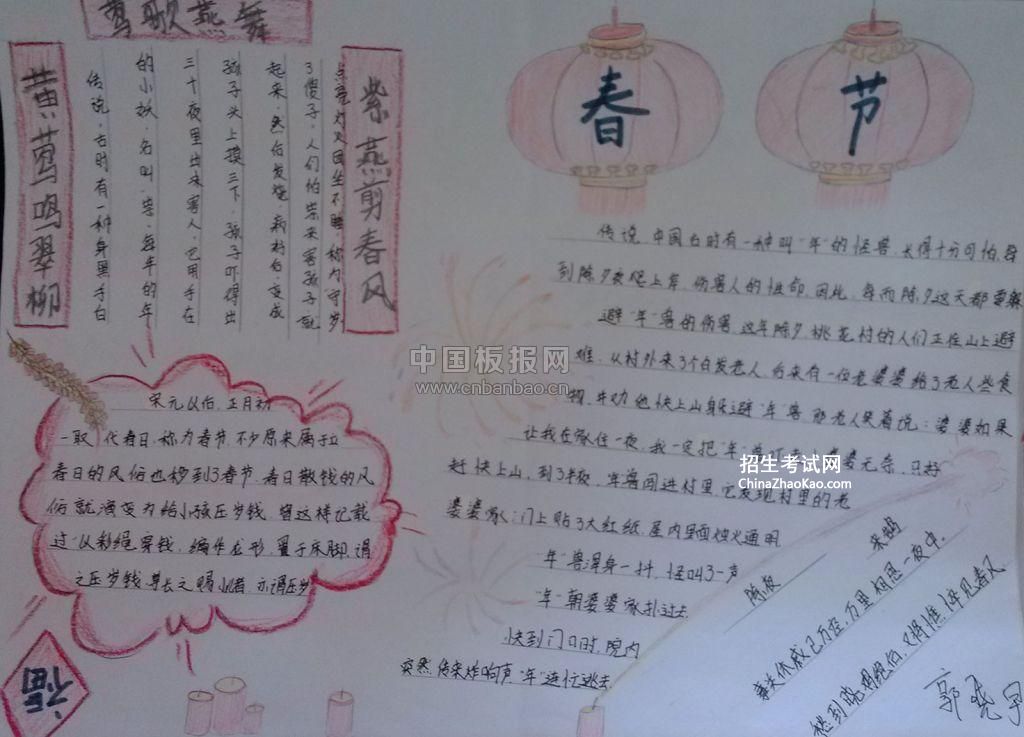 莺歌燕舞
黄莺鸣翠柳
紫燕剪春风
传说,古时有一种身黑手白
的小妖,名叫"祟",每年的年
三十夜里出来害人,它用手在
孩子头上摸三下,孩子吓得
起来,然后发烧
了傻子,人们怕祟来害孩子,就
点亮灯火团坐不睡,称为"守岁
春
节
传说,中国古时有一种叫"年"的怪兽,长得十分可怕,每
到除夕夜爬上岸,伤害人的性命,因此,每而除夕这天都要
避"年"兽的伤害,这年除夕,桃花村的人们正在山上避
难,从村外来了个白发老人,后来有一位老婆婆给了老人些食
物,并劝他快上山躲避"年"兽,那老人笑着说:婆婆如果
让我在家住一夜,我一定把"年"
婆无奈,只好
赶快上山,到了半夜,年兽闯进村里,它发现村里的老
婆婆家:门上贴了大红纸,屋内里面烛火通明
"年"兽浑身一抖,怪叫了一声
"年"朝婆婆家扑过去
快到门口时,院内
突然传来炸响声,"年"连忙逃去
宋元以后,正月初
一取代春日,称为春节,不少原来属于
春日的风俗也移到了春节,春日散钱的风
俗就演变为给小孩压岁钱,曾这样记载
过"以彩绳穿钱,编作龙形,置于床脚,谓
之压岁钱,尊长之赐小者,亦谓压岁
福
除夜
来鹄
事关休戚已成空,万里相思一夜中
愁到晓
后,又将憔悴见春风
郭晓宇
中国板报网
www.cnbanbao.cn
招生考试网
ChinaZhaoKao.com